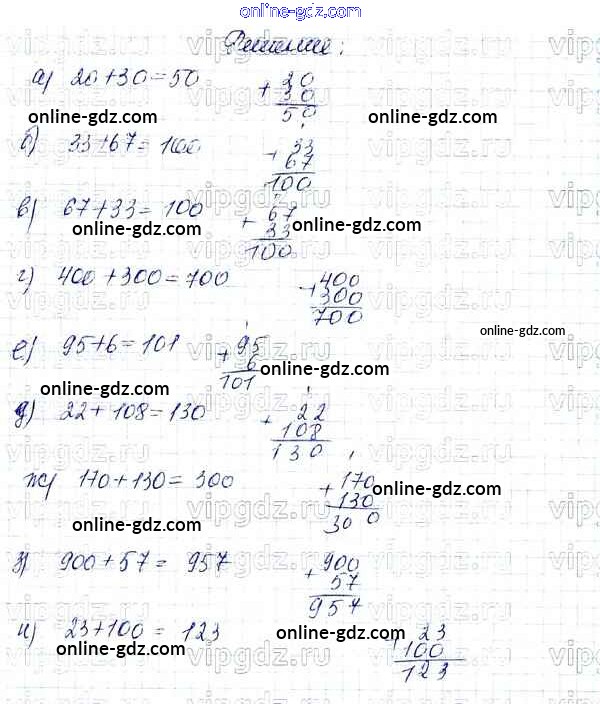 online-gdz.com
Решение:
а) 20+30=50 + 20 30 50
online-gdz.com online-gdz.com
б) 33+67=100 + 33 67 100
в) 67+33=100 + 67 33 100
online-gdz.com online-gdz.com
г) 400+300=700 + 400 300 700
online-gdz.com
е) 95+6=101 + 95 6 101
online-gdz.com online-gdz.com
д) 22+108=130 + 22 108 130
ж) 170+130=300 + 170 130 300
online-gdz.com online-gdz.com
з) 900+57=957 + 900 57 957
и) 23+100=123 + 23 100 123
online-gdz.com online-gdz.com